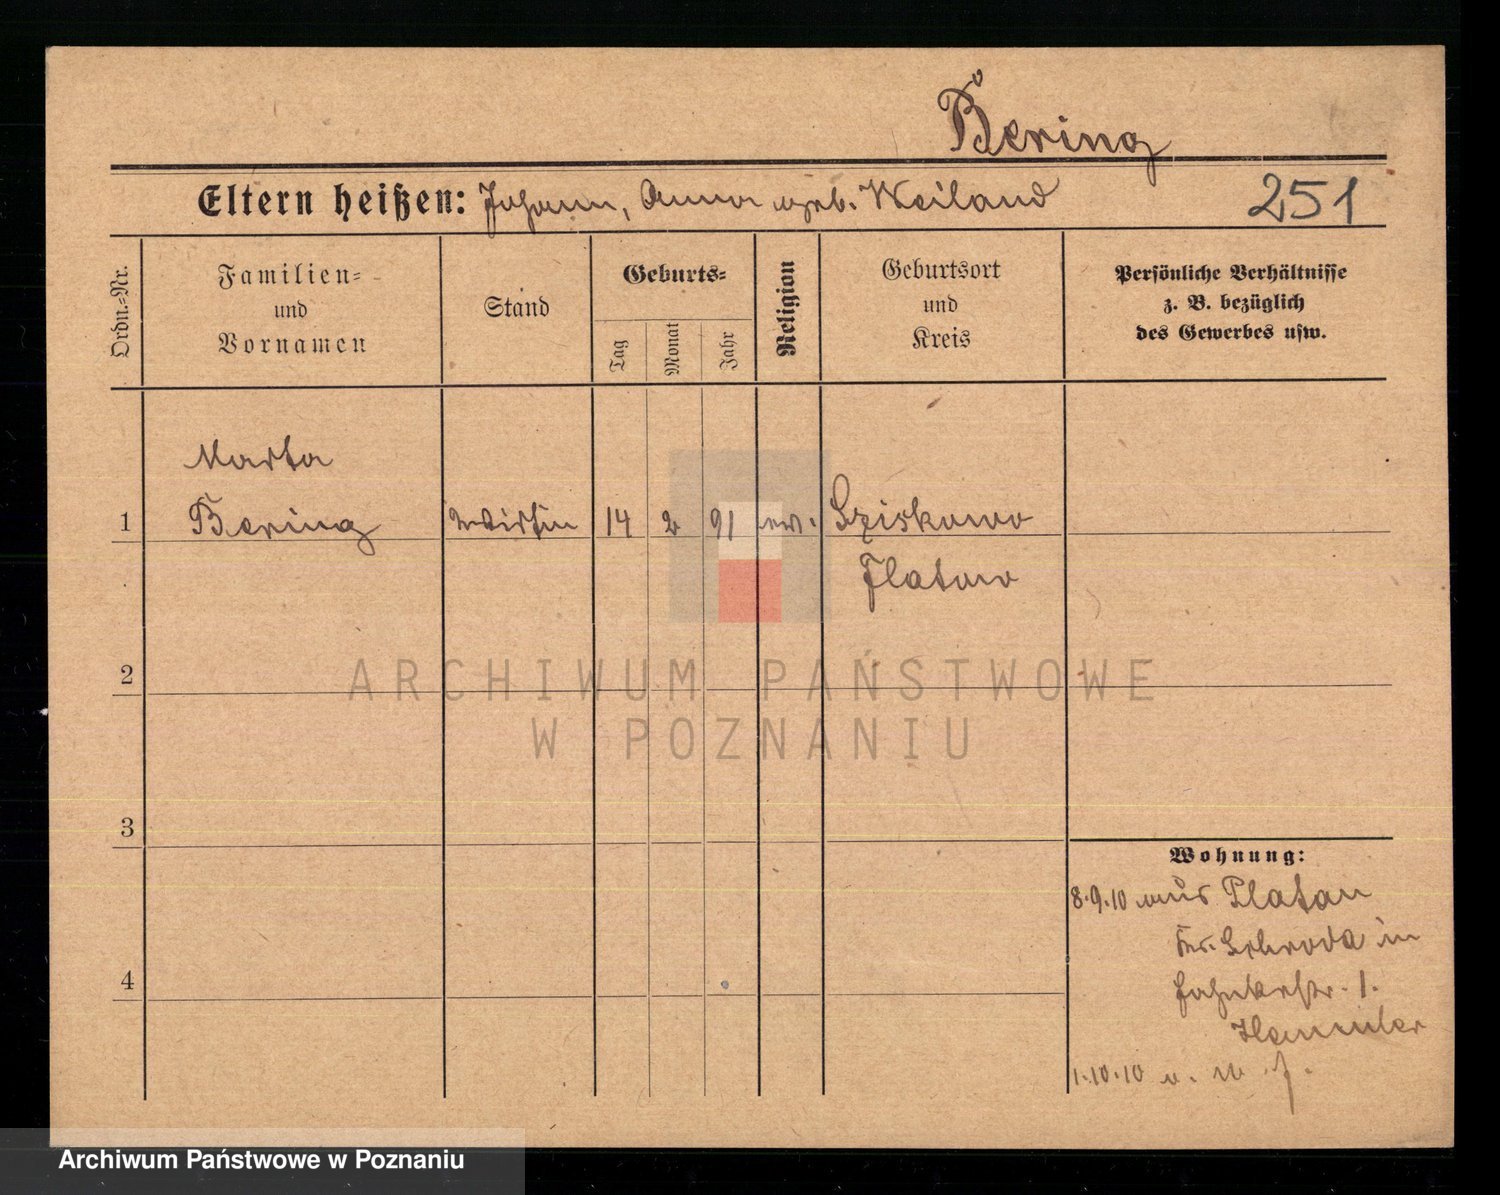 Bering
Eltern heißen: Johann, Anna geb. Weiland
251
Ordn.-Nr.
Familien-
und
Vornamen
Stand
Geburts-
Tag
Monat
Jahr
Religion
Geburtsort
und
Kreis
Persönliche Verhältnisse
z. B. bezüglich
des Gewerbes usw.
Marta
1 Bering 14 2 91 ev. Sziskowo
Flatow
2
ARCHIWUM PAŃSTWOWE
W POZNANIU
3
Wohnung:
8.9.10 aus Platan
Kr. Schroda in
1.
1.10.10
4
Archiwum Państwowe w Poznaniu